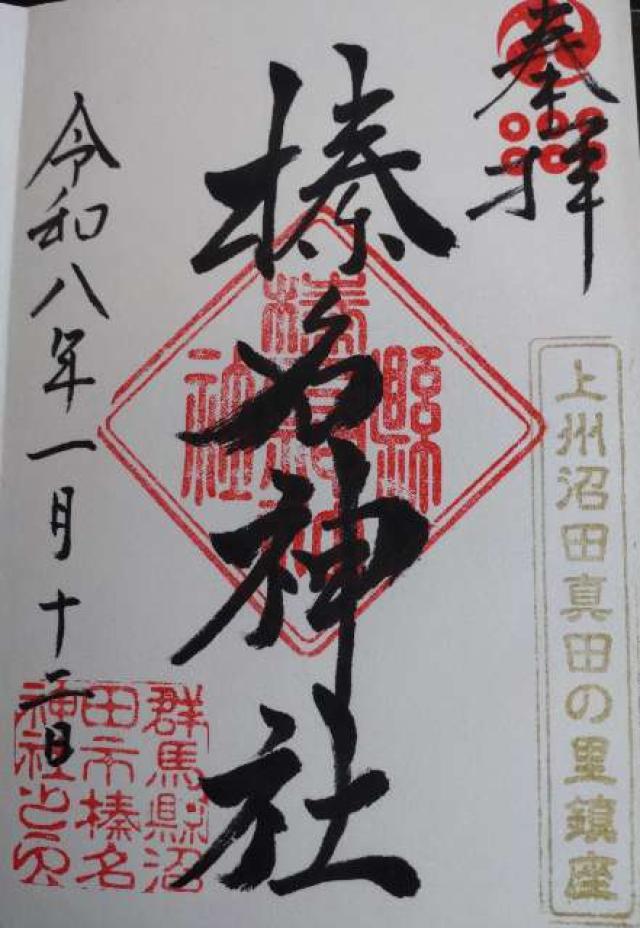 奉拝
上州沼田真田の里鎮座
榛名神社
令和八年一月十二日
群馬縣沼
田市榛名
神社之印